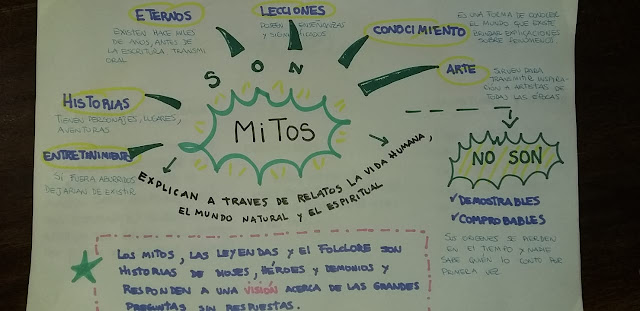 ETERNOS
EXISTEN HACE MILES
DE AÑOS, ANTES DE
LA ESCRITURA TRANSMI
ORAL
LECCIONES
POSEEN ENSEÑANZAS
Y SIGNIFICADOS
CONOCIMIENTO
ES UNA FORMA DE CONOCER
EL MUNDO QUE EXISTE
BRINDAR EXPLICACIONES
SOBRE FENÓMENOS
ARTE
SIRVEN PARA
TRANSMITIR INSPIRA-
CIÓN A ARTISTAS DE
TODAS LAS
HISTORIAS
TIENEN PERSONAJES, LUGARES,
AVENTURAS
ENTRETENIMIENTO
SI FUERA ABURRIDOS
DEJARIAN DE EXISTIR
SON
MiTOS
EXPLICAN A TRAVES DE RELATOS LA VIDA HUMANA,
EL MUNDO NATURAL Y EL ESPIRITUAL
NO SON
DEMOSTRABLES
COMPROBABLES
SUS ORIGENES SE PIERDEN
EN EL TIEMPO Y NADIE
SABE QUIÉN LO CONTO POR
PRIMERA VEZ
LOS MITOS, LAS LEYENDAS Y El FOLCLORE SON
HISTORIAS DE DIOSES, HÉROES Y DEMONIOS Y
RESPONDEN A UNA VISIÓN ACERCA DE LAS GRANDES
PREGUNTAS SIN RESPUESTAS.